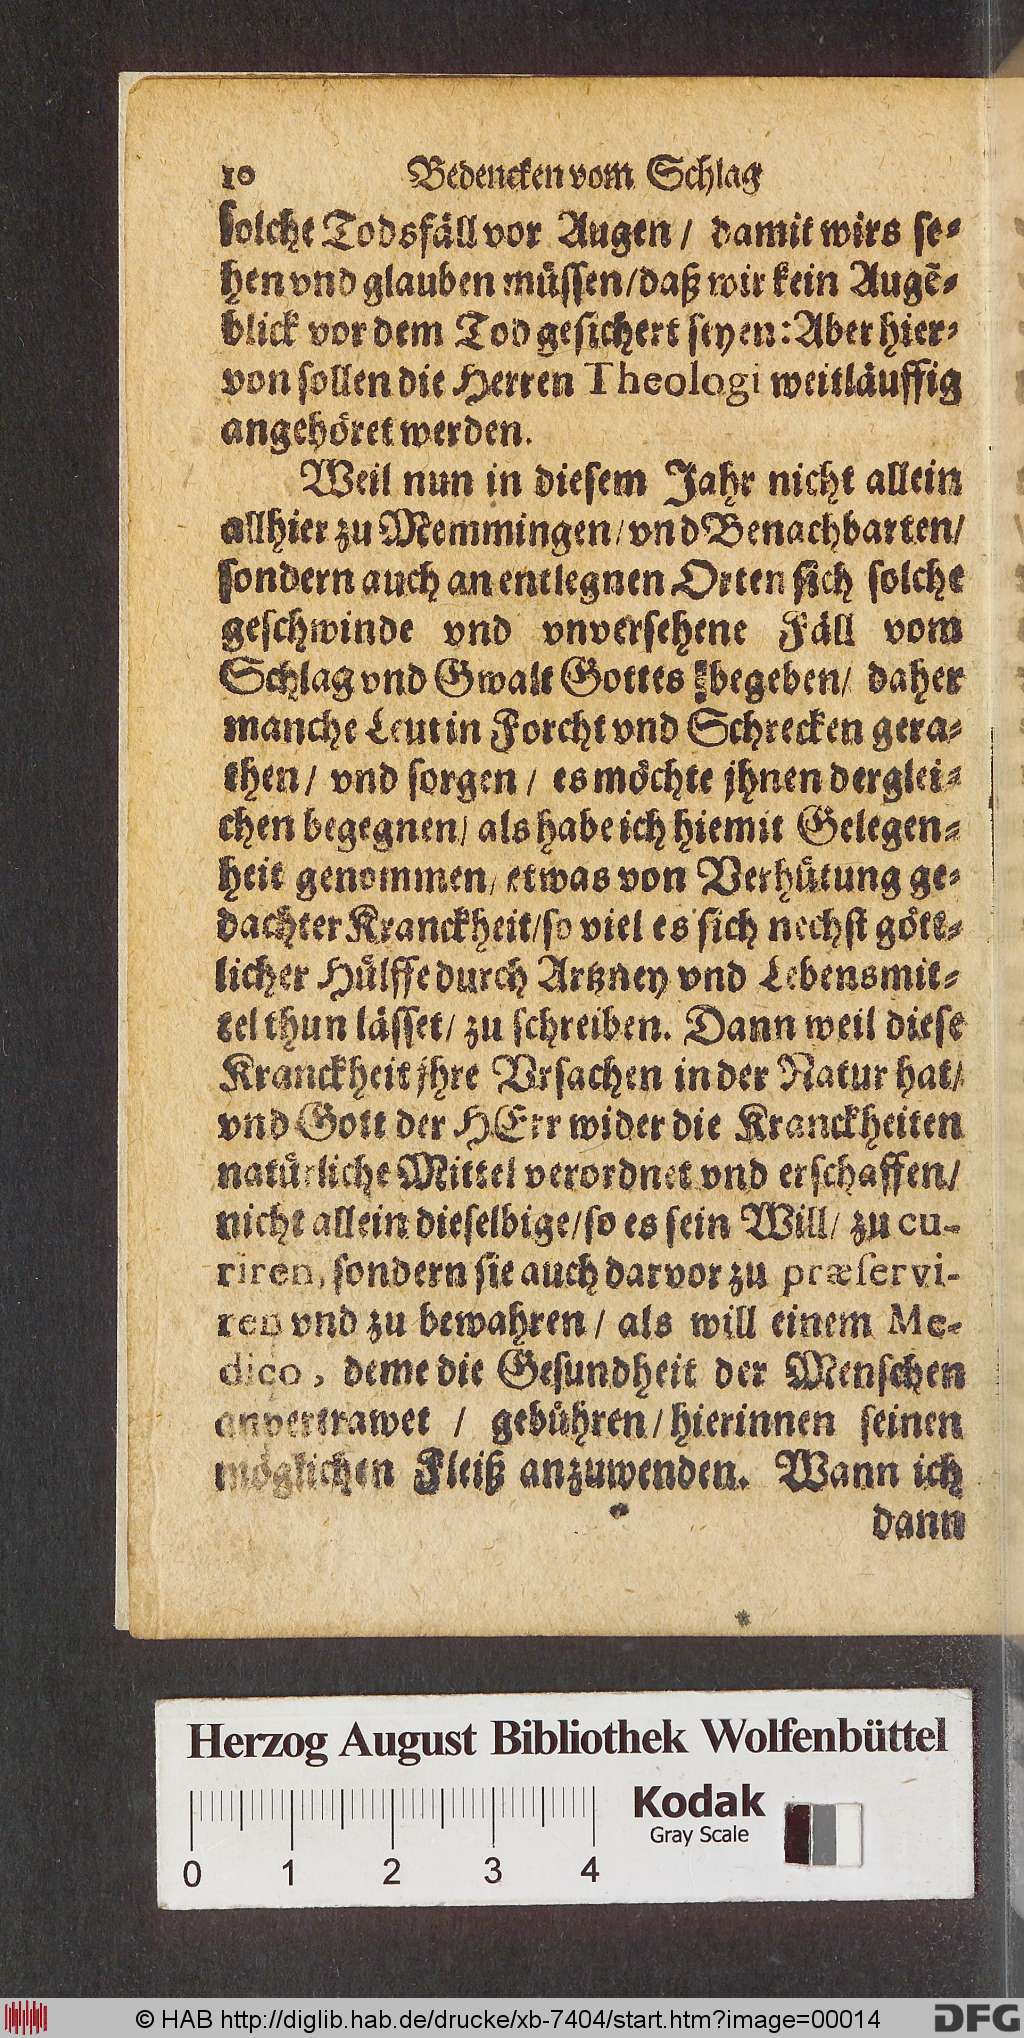 10 Bedencken vom Schlag
solche Todsfäll vor Augen / damit wirs se-
hen vnd glauben müssen/daß wir kein Augē-
blick vor dem Tod gesichert seyen: Aber hier-
von sollen die Herren Theologi weitläuffig
angehöret werden.
Weil nun in diesem Jahr nicht allein
allhier zu Memmingen/ vnd Benachbarten/
sondern auch an entlegnen Orten sich solche
geschwinde vnd vnversehene Fäll vom
Schlag vnd Gwalt Gottes begeben/ daher
manche Leut in Forcht vnd Schrecken gera-
then/ vnd sorgen / es möchte jhnen derglei-
chen begegnen/ als habe ich hiemit Gelegen-
heit genommen, etwas von Verhütung ge-
dachter Kranckheit/so viel es sich nechst gött-
licher Hülffe durch Artzney vnd Lebensmit-
tel thun lässet/ zu schreiben. Dann weil diese
Kranckheit jhre Vrsachen in der Natur hat/
vnd Gott der HErr wider die Kranckheiten
natürliche Mittel verordnet vnd erschaffen/
nicht allein dieselbige/so es sein Will/ zu cu-
riren, sondern sie auch darvor zu præservi-
ren vnd zu bewahren / als will einem Me-
dico, deme die Gesundheit der Menschen
anvertrawet / gebühren/hierinnen seinen
möglichen Fleiß anzuwenden. Wann ich
dann
Herzog August Bibliothek Wolfenbüttel
Kodak
Gray Scale
0 1 2 3 4
© HAB http://diglib.hab.de/drucke/xb-7404/start.htm?image=00014
DFG